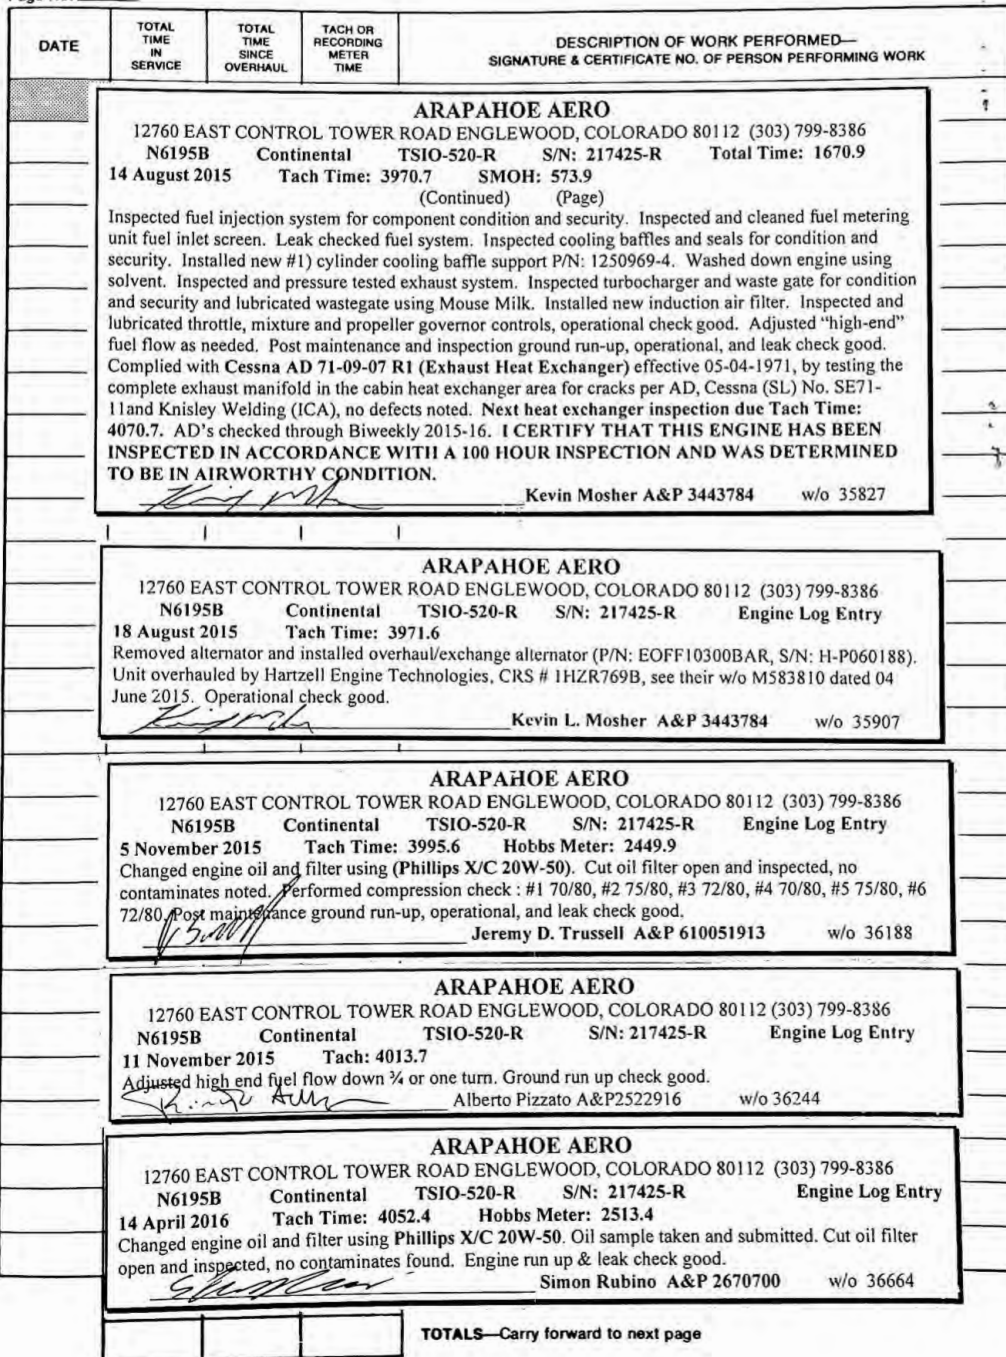 DATE
TOTAL TIME IN SERVICE
TOTAL TIME SINCE OVERHAUL
TACH OR RECORDING METER TIME
DESCRIPTION OF WORK PERFORMED—
SIGNATURE & CERTIFICATE NO. OF PERSON PERFORMING WORK
ARAPAHOE AERO
12760 EAST CONTROL TOWER ROAD ENGLEWOOD, COLORADO 80112 (303) 799-8386
N6195B Continental TSIO-520-R S/N: 217425-R Total Time: 1670.9
14 August 2015 Tach Time: 3970.7 SMOH: 573.9
(Continued) (Page)
Inspected fuel injection system for component condition and security. Inspected and cleaned fuel metering
unit fuel inlet screen. Leak checked fuel system. Inspected cooling baffles and seals for condition and
security. Installed new #1) cylinder cooling baffle support P/N: 1250969-4. Washed down engine using
solvent. Inspected and pressure tested exhaust system. Inspected turbocharger and waste gate for condition
and security and lubricated wastegate using Mouse Milk. Installed new induction air filter. Inspected and
lubricated throttle, mixture and propeller governor controls, operational check good. Adjusted "high-end"
fuel flow as needed. Post maintenance and inspection ground run-up, operational, and leak check good.
Complied with Cessna AD 71-09-07 R1 (Exhaust Heat Exchanger) effective 05-04-1971, by testing the
complete exhaust manifold in the cabin heat exchanger area for cracks per AD, Cessna (SL) No. SE71-
11and Knisley Welding (ICA), no defects noted. Next heat exchanger inspection due Tach Time:
4070.7. AD's checked through Biweekly 2015-16. I CERTIFY THAT THIS ENGINE HAS BEEN
INSPECTED IN ACCORDANCE WITH A 100 HOUR INSPECTION AND WAS DETERMINED
TO BE IN AIRWORTHY CONDITION.
Kevin Mosher A&P 3443784 w/o 35827
ARAPAHOE AERO
12760 EAST CONTROL TOWER ROAD ENGLEWOOD, COLORADO 80112 (303) 799-8386
N6195B Continental TSIO-520-R S/N: 217425-R Engine Log Entry
18 August 2015 Tach Time: 3971.6
Removed alternator and installed overhaul/exchange alternator (P/N: EOFF10300BAR, S/N: H-P060188).
Unit overhauled by Hartzell Engine Technologies, CRS # 1HZR769B, see their w/o M583810 dated 04
June 2015. Operational check good.
Kevin L. Mosher A&P 3443784 w/o 35907
ARAPAHOE AERO
12760 EAST CONTROL TOWER ROAD ENGLEWOOD, COLORADO 80112 (303) 799-8386
N6195B Continental TSIO-520-R S/N: 217425-R Engine Log Entry
5 November 2015 Tach Time: 3995.6 Hobbs Meter: 2449.9
Changed engine oil and filter using (Phillips X/C 20W-50). Cut oil filter open and inspected, no
contaminates noted. Performed compression check : #1 70/80, #2 75/80, #3 72/80, #4 70/80, #5 75/80, #6
72/80. Post maintenance ground run-up, operational, and leak check good.
Jeremy D. Trussell A&P 610051913 w/o 36188
ARAPAHOE AERO
12760 EAST CONTROL TOWER ROAD ENGLEWOOD, COLORADO 80112 (303) 799-8386
N6195B Continental TSIO-520-R S/N: 217425-R Engine Log Entry
11 November 2015 Tach: 4013.7
Adjusted high end fuel flow down ¾ or one turn. Ground run up check good.
Alberto Pizzato A&P2522916 w/o 36244
ARAPAHOE AERO
12760 EAST CONTROL TOWER ROAD ENGLEWOOD, COLORADO 80112 (303) 799-8386
N6195B Continental TSIO-520-R S/N: 217425-R Engine Log Entry
14 April 2016 Tach Time: 4052.4 Hobbs Meter: 2513.4
Changed engine oil and filter using Phillips X/C 20W-50. Oil sample taken and submitted. Cut oil filter
open and inspected, no contaminates found. Engine run up & leak check good.
Simon Rubino A&P 2670700 w/o 36664
TOTALS—Carry forward to next page